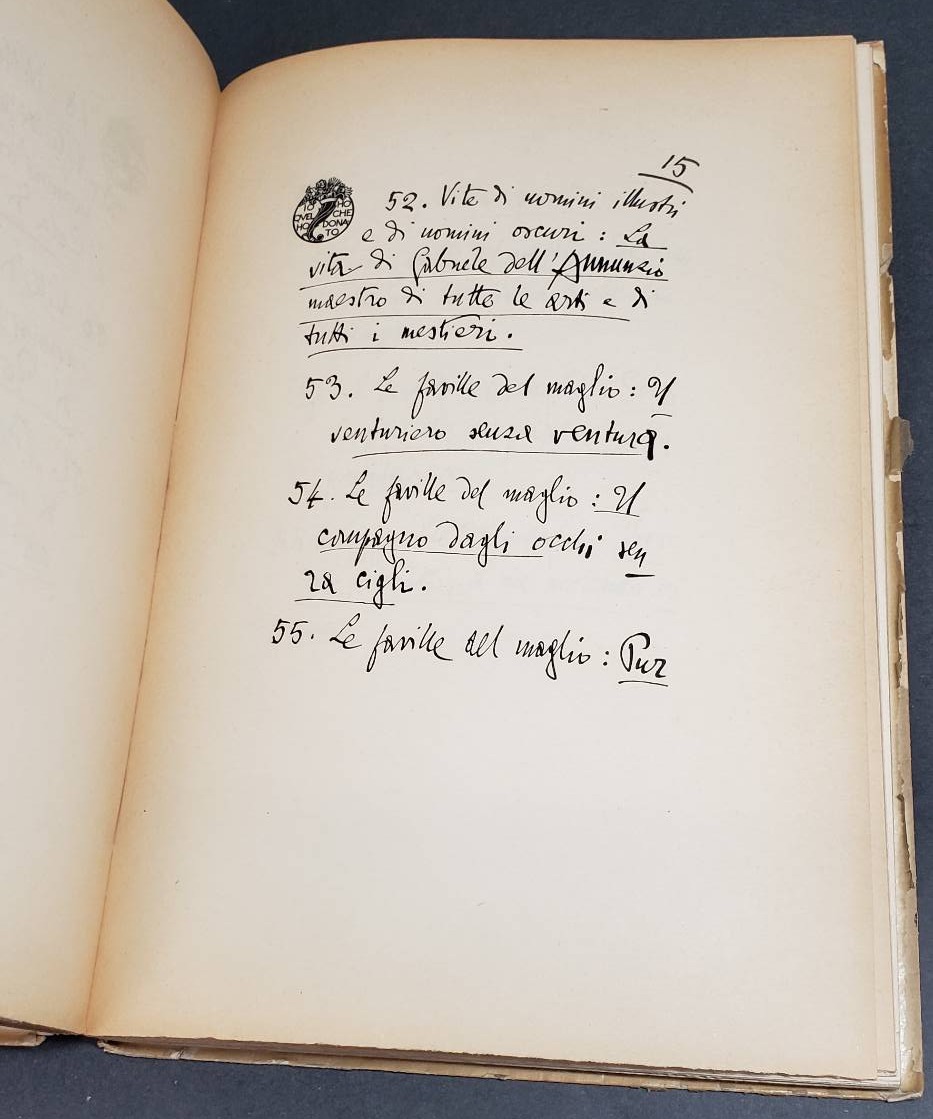 15
IO HO
QVEL CHE
HO DONA
TO
52. Vite di uomini illustri
e di uomini oscuri : La
vita di Gabriele dell'Annunzio
maestro di tutte le arti e di
tutti i mestieri.
53. Le faville del maglio : Il
venturiero senza ventura.
54. Le faville del maglio : Il
compagno dagli occhi sen
za cigli.
55. Le faville del maglio : Pur